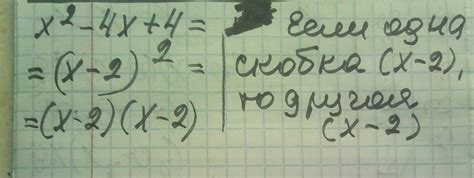 x² - 4x + 4 =
= (x - 2)² =
= (x - 2)(x - 2)
Если одна
скобка (x - 2),
то другая
(x - 2)